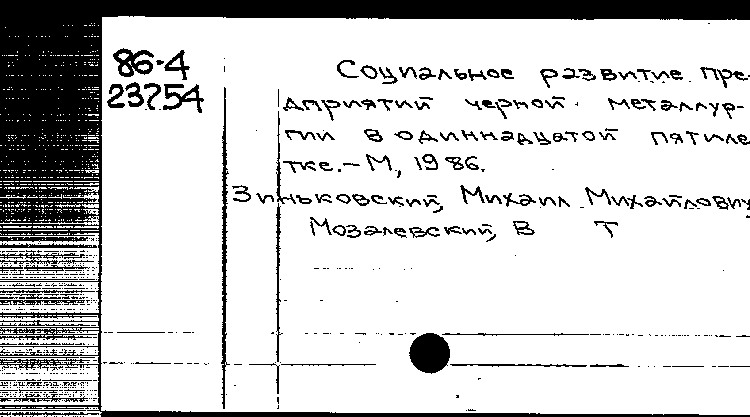 86-4
23754
Социальное развитие пре-
дприятий черной металлур-
гии в одиннадцатой пятиле
тке.-М, 1986.
Зиньковский, Михаил Михайлович
Мозалевский, В Т